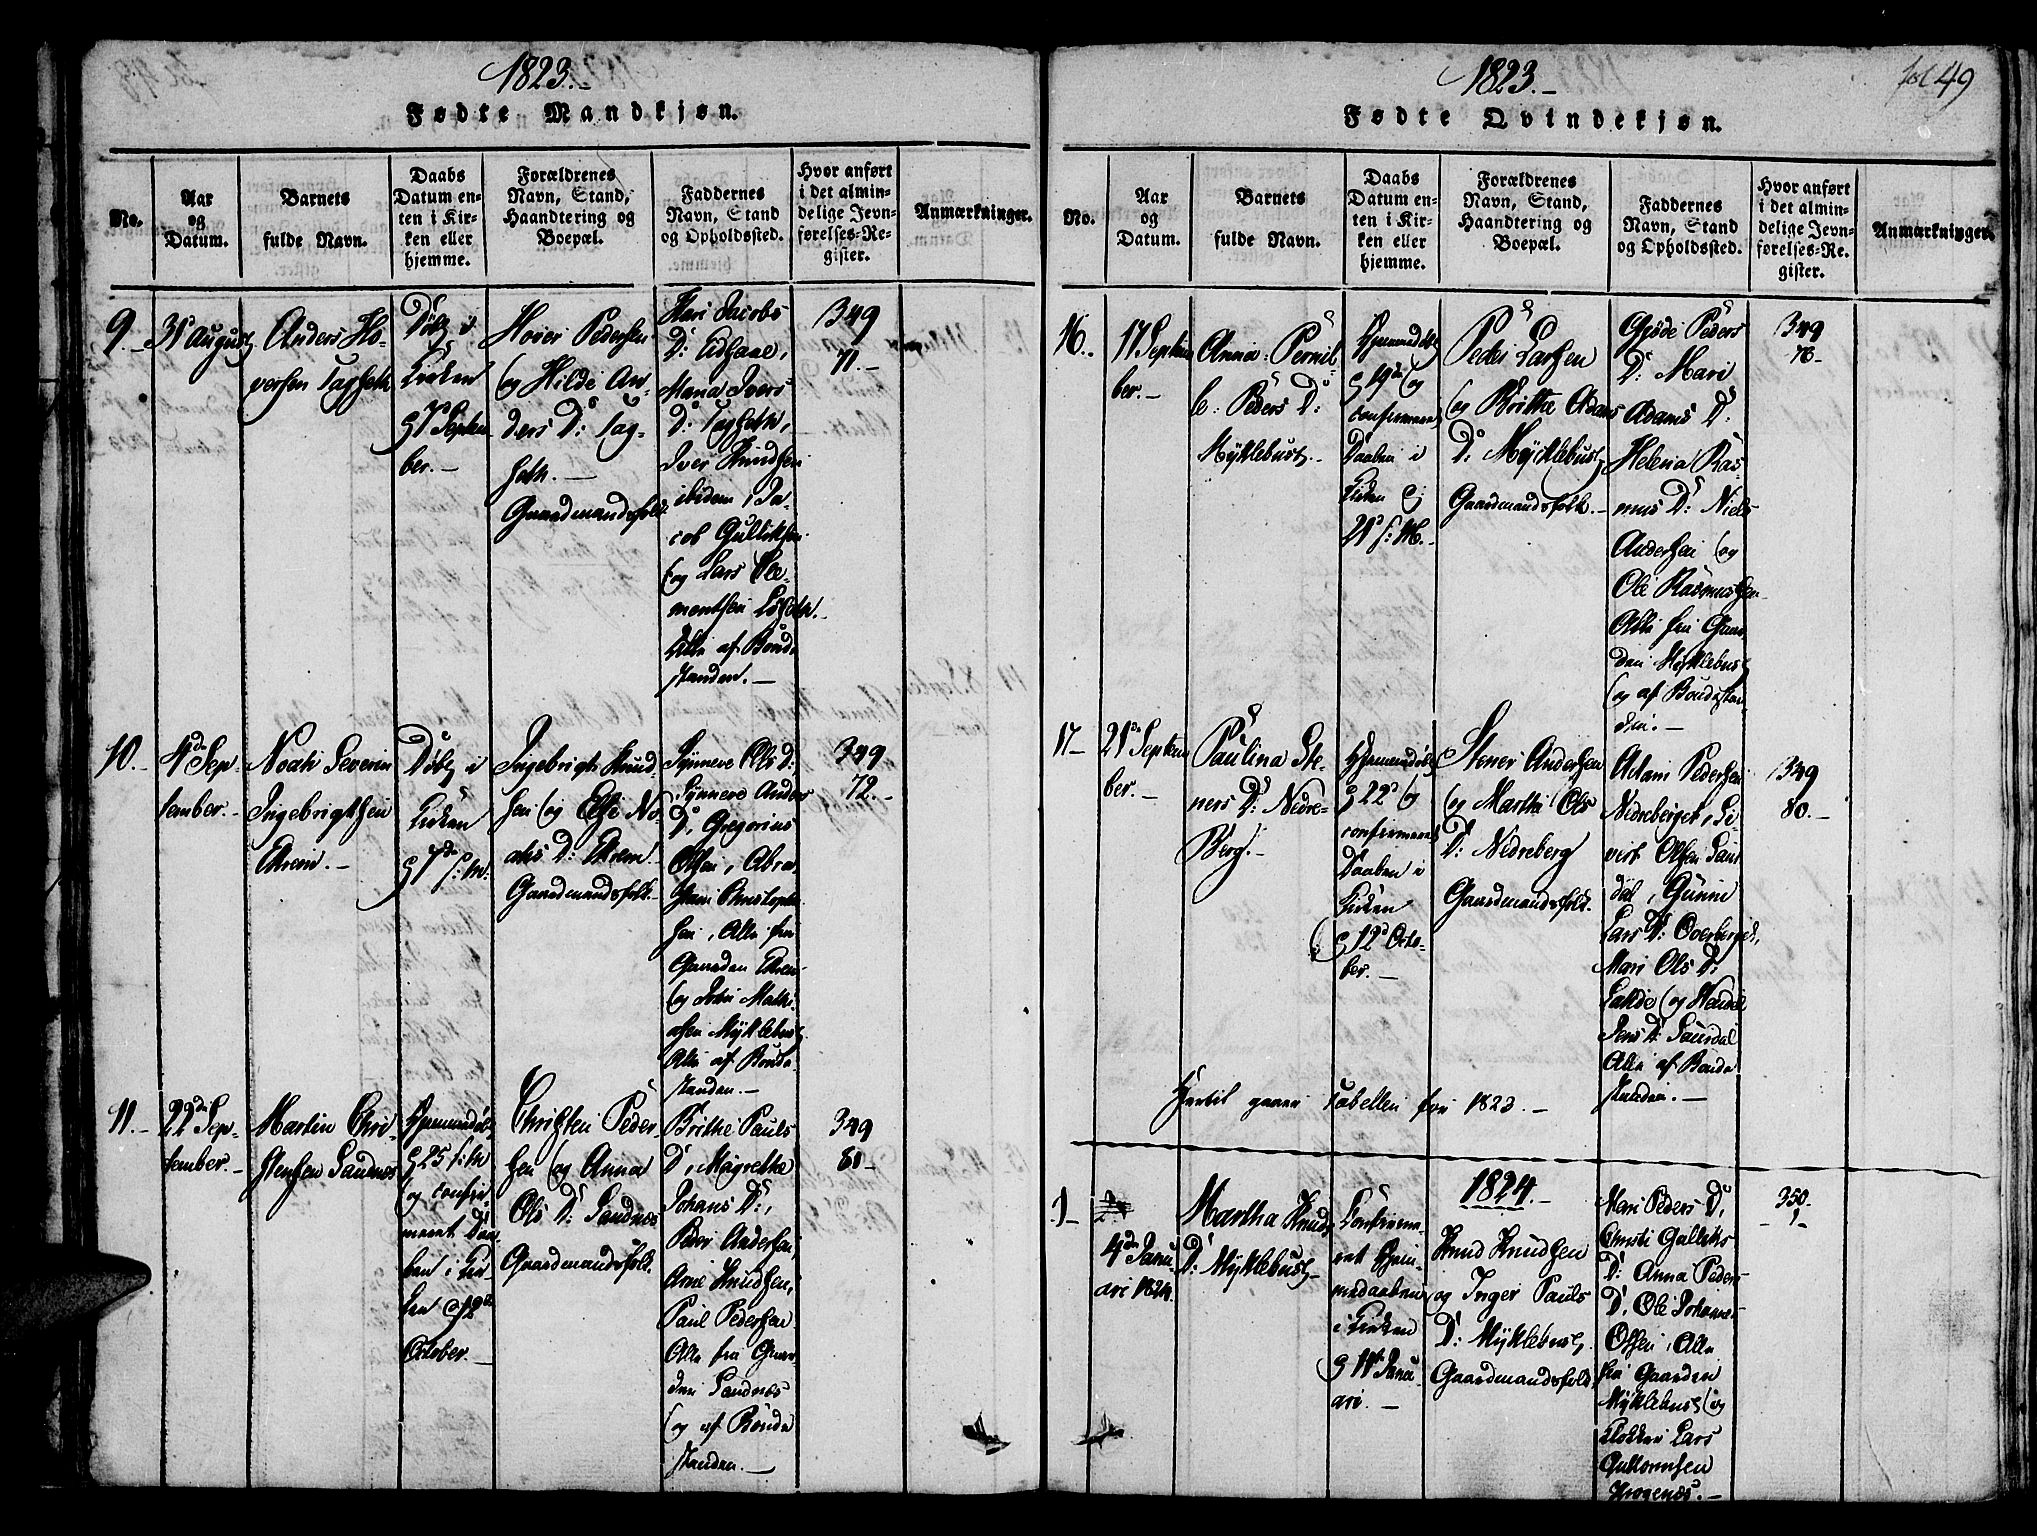 1823.-
Fødte Mandkjøn.
No.
Aar
og
Datum.
Barnets
fulde Navn.
Daabs
Datum en-
ten i Kir-
ken eller
hjemme.
Forældrenes
Navn, Stand,
Haandtering og
Boepæl.
Faddernes
Navn, Stand
og Opholdssted.
Hvor anført
i det almin-
delige Jevn-
førelses-Re-
gister.
Anmærkninger.
9.-
31 August
Anders Ho-
versen Tagseth
Døbt i
Kirken
7 Septem
ber.-
Hover Pedersen
og Hilde An-
ders D: Tag-
seth.-
Gaardmandsfolk
Kari Jacobs
D: Eidhane,
Maria Ivers
D: Tagseth,
Iver Knudsen
ibidem, Ja-
cob Gulliksen
og Lars Cle-
mentsen
Alle af Bonde
standen.-
349
71.-
10.-
4de Sep-
tember.-
Noah Severin
Ingebrigtsen
Ekrem.-
Døbt i
Kirken
7de s: M:
Ingebrigt Knud-
sen og Else No-
ahs D: Ekrem.
Gaardmandsfolk.-
Synneve Ols D:
Synneve Anders
D, Gregorius
Olsen, Abra-
ham Christophe
sen, Alle fra
Gaarden Ekrem
og John Mathi-
asen Myklebust
Alle af Bonde
standen.-
349
72.-
11.-
22de Sep-
tember.-
Martin Chri-
stensen Sandnes
Hjemmedøbt
25 s: M
og confir
meret Daa-
ben i Kir-
ken 12te
October.-
Christen Peder-
sen og Anna
Ols D: Sandnes
Gaardmandsfolk.
Brithe Pauls
D, Magrethe
Johans D:,
Peder Andersen,
Arne Knudsen,
Paul Pedersen
Alle fra Gaar-
den Sandnes
og af Bonde
standen.-
349
81-
1823.-
fol 49
Fødte Qvindekjøn.
No.
Aar
og
Datum.
Barnets
fulde Navn.
Daabs
Datum en-
ten i Kir-
ken eller
hjemme.
Forældrenes
Navn, Stand,
Haandtering og
Boepæl.
Faddernes
Navn, Stand
og Opholdssted.
Hvor anført
i det almin-
delige Jevn-
førelses-Re-
gister.
Anmærkninger.
16.
17 Septem
ber.-
Anna Pernil-
le Peders D:
Myklebust.-
Hjemmedøbt
19de og
confirmeret
Daaben i
Kirken
21 s: M.-
Peder Larsen
og Brithe Adams
D: Myklebust
Gaardmandsfolk.-
Gjøde Peders
D: Mari
Adams D:
Helena Ras-
mus D: Niels
Andersen og
Ole Rasmussen
Alle fra Gaar
den Myklebust
og af Bondestan-
den.-
349
76-
17-
21de Septem
ber.-
Paulina Ste-
ners D: Nedre-
Berg.-
Hjemmedøbt
22 og
confirmeret
Daaben i
Kirken
12 Octo-
ber.-
Stener Andersen
og Marthe Ols
D: Nedreberg
Gaardmandsfolk.
Adam Pedersen
Nedreberget, Si-
vert Olsen Saur
dal, Gunni
Lars D: Overberget,
Mari Ols D:
og
Jens D: Saurdal
Alle af Bonde
standen.-
349
80.-
Hertil gaaer Tabellen for 1823.-
1824.-
1-
4de Janu-
ari 1824.
Martha Knuds
D: Myklebust
Confirme-
ret Hjem-
medaaben
i Kirken
11te Janu-
ari.-
Knud Knudsen
og Inger Pauls
D: Myklebust,
Gaardmandsfolk
Mari Peders D,
Christi Gulliks
D: Anna Peders
D, Ole Johannes
Olsen, Alle
fra Gaarden
Myklebust og
Klokker Lars
Guttormsen
350.
-1-